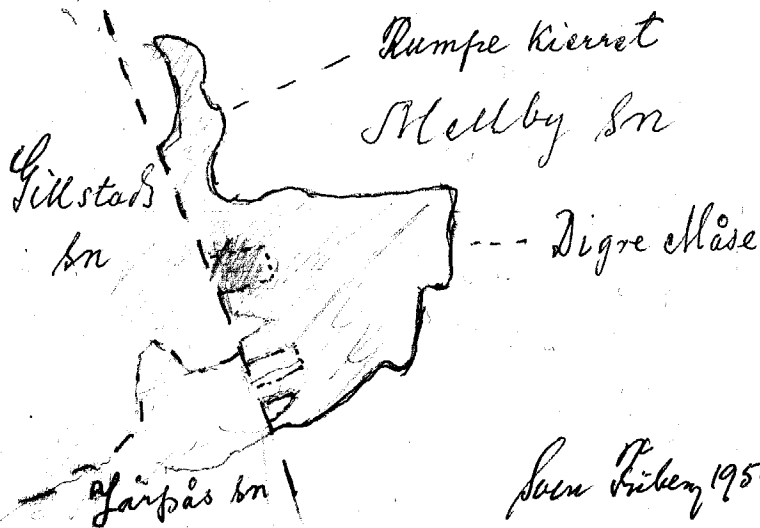 Rumpe Kierret
Mellby Sn
Gillstads
Sn
Digre Måse
Järpås Sn
Sven